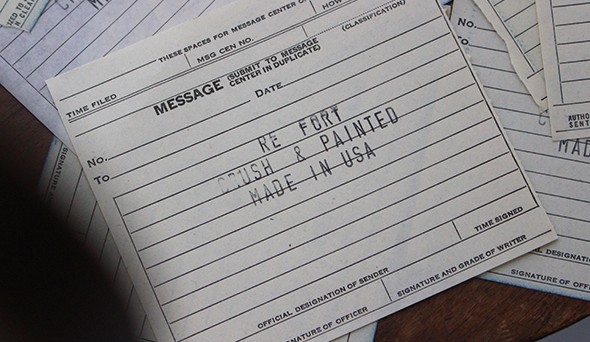 THESE SPACES FOR MESSAGE CENTER
HOW
MSG CEN NO.
(CLASSIFICATION)
TIME FILED
MESSAGE (SUBMIT TO MESSAGE
CENTER IN DUPLICATE)
DATE
No.
To
RE FORT
CRUSH & PAINTED
MADE IN USA
TIME SIGNED
OFFICIAL DESIGNATION OF SENDER
SIGNATURE AND GRADE OF WRITER
SIGNATURE OF OFFICER
AUTHO
SENT
MAD
OFFICIAL DESIGNATION
SIGNATURE OF